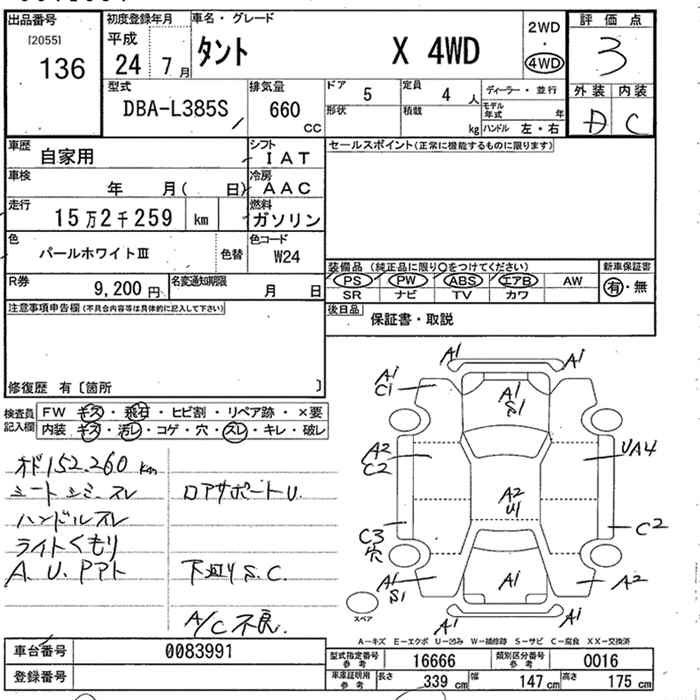 出品番号
[2055]
136
初度登録年月
平成
24 7 月
車名・グレード
タント X 4WD
2WD
・
4WD
評価点
3
外装 内装
D C
型式
DBA-L385S
排気量
660 CC
ドア 5
形状
定員 4 人
積載 kg
ディーラー・並行
モデル年式 年
ハンドル 左・右
車歴
自家用
シフト
IAT
車検
年 月( 日)
冷房
AAC
走行
15万2千259 km
燃料
ガソリン
色
パールホワイトⅢ
色替
色コード
W24
R券
9,200 円
名変通知期限
月 日
セールスポイント(正常に機能するものに限ります)
装備品 (純正品に限り○をつけてください)
新車保証書
PS PW ABS エアB AW
有・無
SR ナビ TV カワ
後日品
保証書・取説
注意事項申告欄(不具合内容等は具体的に記入して下さい)
修復歴 有〔箇所 〕
検査員記入欄
FW キズ・飛石・ヒビ割・リペア跡・×要
内装 キズ・汚レ・コゲ・穴・スレ・キレ・破レ
オド152.260 km
シート シミ.スレ
ハンドルスレ
ライトくもり
A.U.Pアト
ロアサポートU.
下廻りS.C.
A/C不良.
A1 A1
A1
C1
A1
S1
A2
C2
UA4
A2
U1
C3
穴
C2
A1
S1
A1
A2
A1 A1
スペア
A-キズ E-エクボ U-凹み W-補修跡 S-サビ C-腐食 XX-交換済
車台番号
0083991
登録番号
型式指定番号
参考
16666
類別区分番号
参考
0016
車庫証明用
参考
長さ 339 cm
幅 147 cm
高さ 175 cm